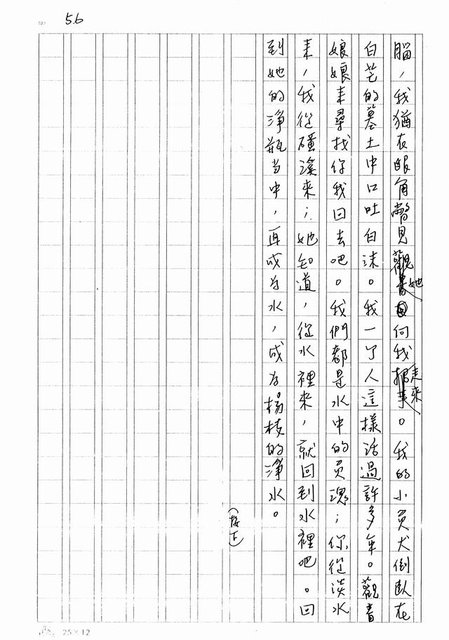 56
腦,我猶在眼角瞥見她向我走來。我的小黃犬倒臥在
白芒的墓土中口吐白沫。我一個人這樣活過許多年。觀音
娘娘來尋找你我回去吧。我們都是水中的英魂;你從淡水
來,我從磺溪來;她知道,從水裡來,就回到水裡吧。回
到她的淨瓶當中,再成為水,成為楊枝的淨水。
25×12